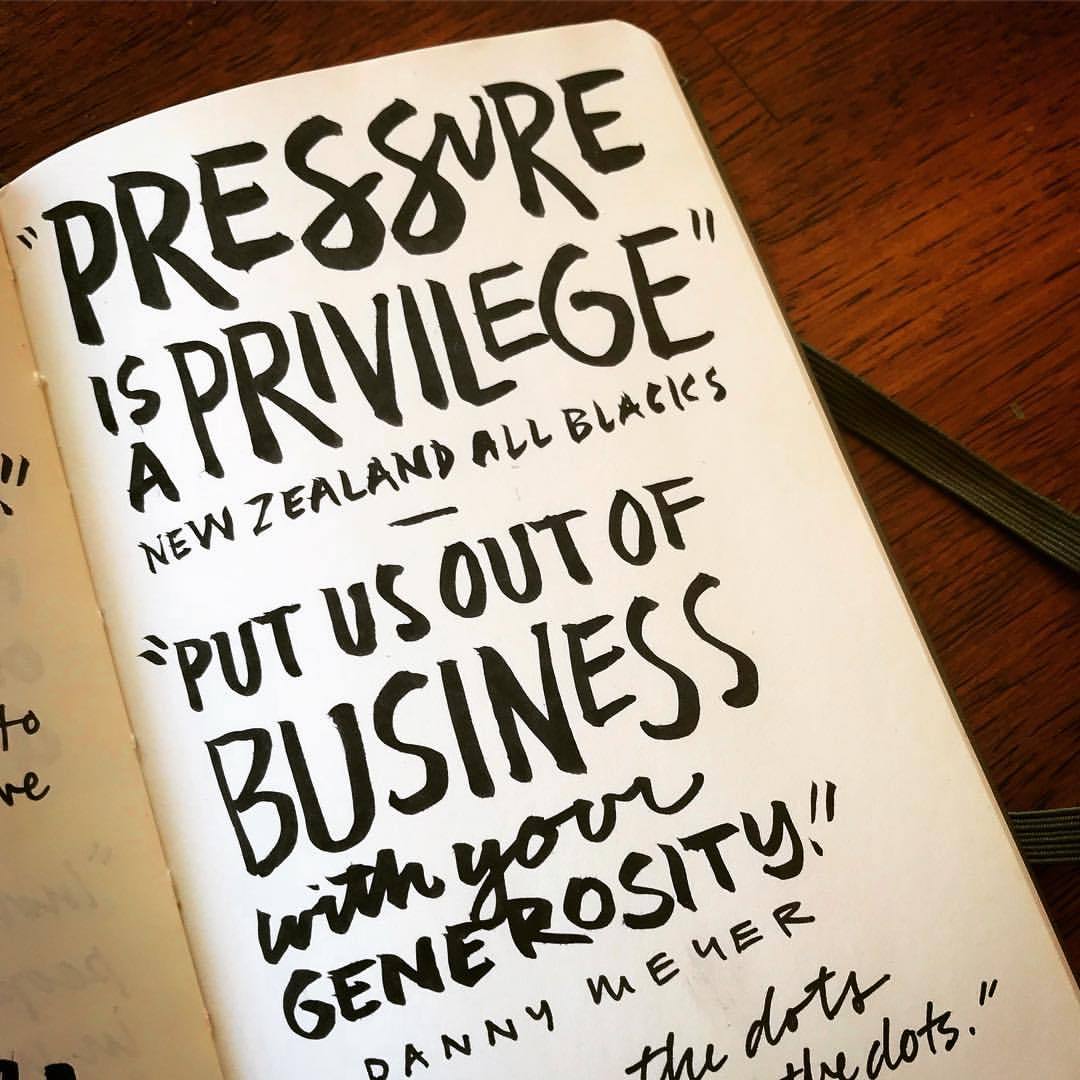 "PRESSURE
IS A PRIVILEGE"
NEW ZEALAND ALL BLACKS
—
"PUT US OUT OF
BUSINESS
with your
GENEROSITY!"
DANNY MEYER
the dots
the dots."
to